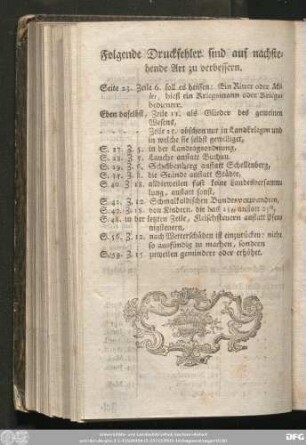 Folgende Druckfehler sind auf nachste-
hende Art zu verbessern.
Seite 23. Zeile 6. soll es heissen: Ein Ritter oder Mi-
les, hieß ein Kriegsmann oder Kriegs-
bedienter.
Eben daselbst, Zeile 11. als Glieder des gemeinen
Wesens,
Zeile 15. obschon nur in Landkriegen und
in welche sie selbst gewilliget,
S. 27. Z. in der Landtagsordnung,
S. 28. Z. Lauche anstatt Buchau.
S. 29. Z. Schellenberg anstatt Schellenberg,
S. 31. Z. die Stände anstatt Städte,
S. 40. Z. alldieweilen fast keine Landesversamm-
lung, anstatt sonst,
S. 41. Z. 12. Schmalkaldischen Bundesverwandten,
S. 42. Z. 18. von Kindern, die das
S. 48. in der letzten Zeile, Fleischsteuern anstatt
S. 56. Z. 12. nach Wetterschäden ist einzurücken: nicht
so ausfündig zu machen, sondern
S. 59. Z. 15. zuweilen gemindert oder erhöhet.